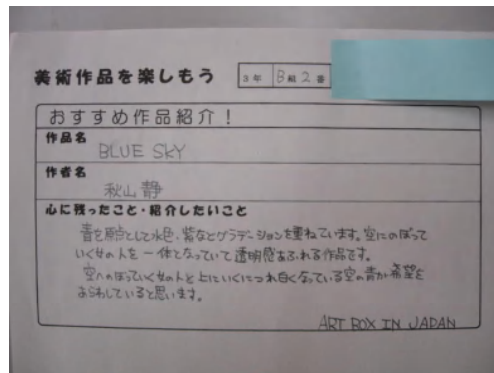 美術作品を楽しもう 3年 B組 2番
おすすめ作品紹介！
作品名
BLUE SKY
作者名
秋山 静
心に残ったこと・紹介したいこと
青を原点として水色、紫などグラデーションを重ねています。空にのぼって
いく女の人を一体となっていて透明感あふれる作品です。
空へのぼっていく女の人と上にいくにつれ白くなっている空の青が希望を
あらわしていると思います。
ART BOX IN JAPAN